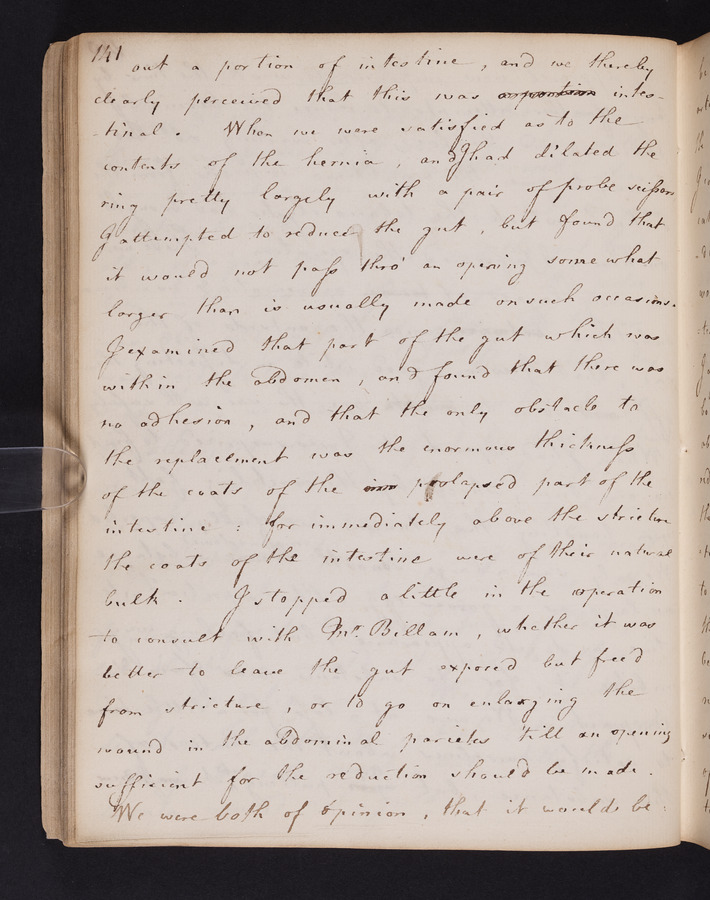 141
out a portion of intestine, and we thereby
clearly perceived that this was intes-
-tinal. When we were satisfied as to the
contents of the hernia, and I had dilated the
ring pretty largely with a pair of probe scissors
I attempted to reduce the gut, but found that
it would not pass thro' an opening somewhat
larger than is usually made on such occasions.
I examined that part of the gut which was
within the abdomen, and found that there was
no adhesion, and that the only obstacle to
the replacement was the enormous thickness
of the coats of the prolapsed part of the
intestine: for immediately above the stricture
the coats of the intestine were of their natural
bulk. I stopped a little in the operation
to consult with Mr. Billam, whether it was
better to leave the gut exposed but freed
from stricture, or to go on enlarging the
wound in the abdominal parietes 'till an opening
sufficient for the reduction should be made.
We were both of opinion, that it would be